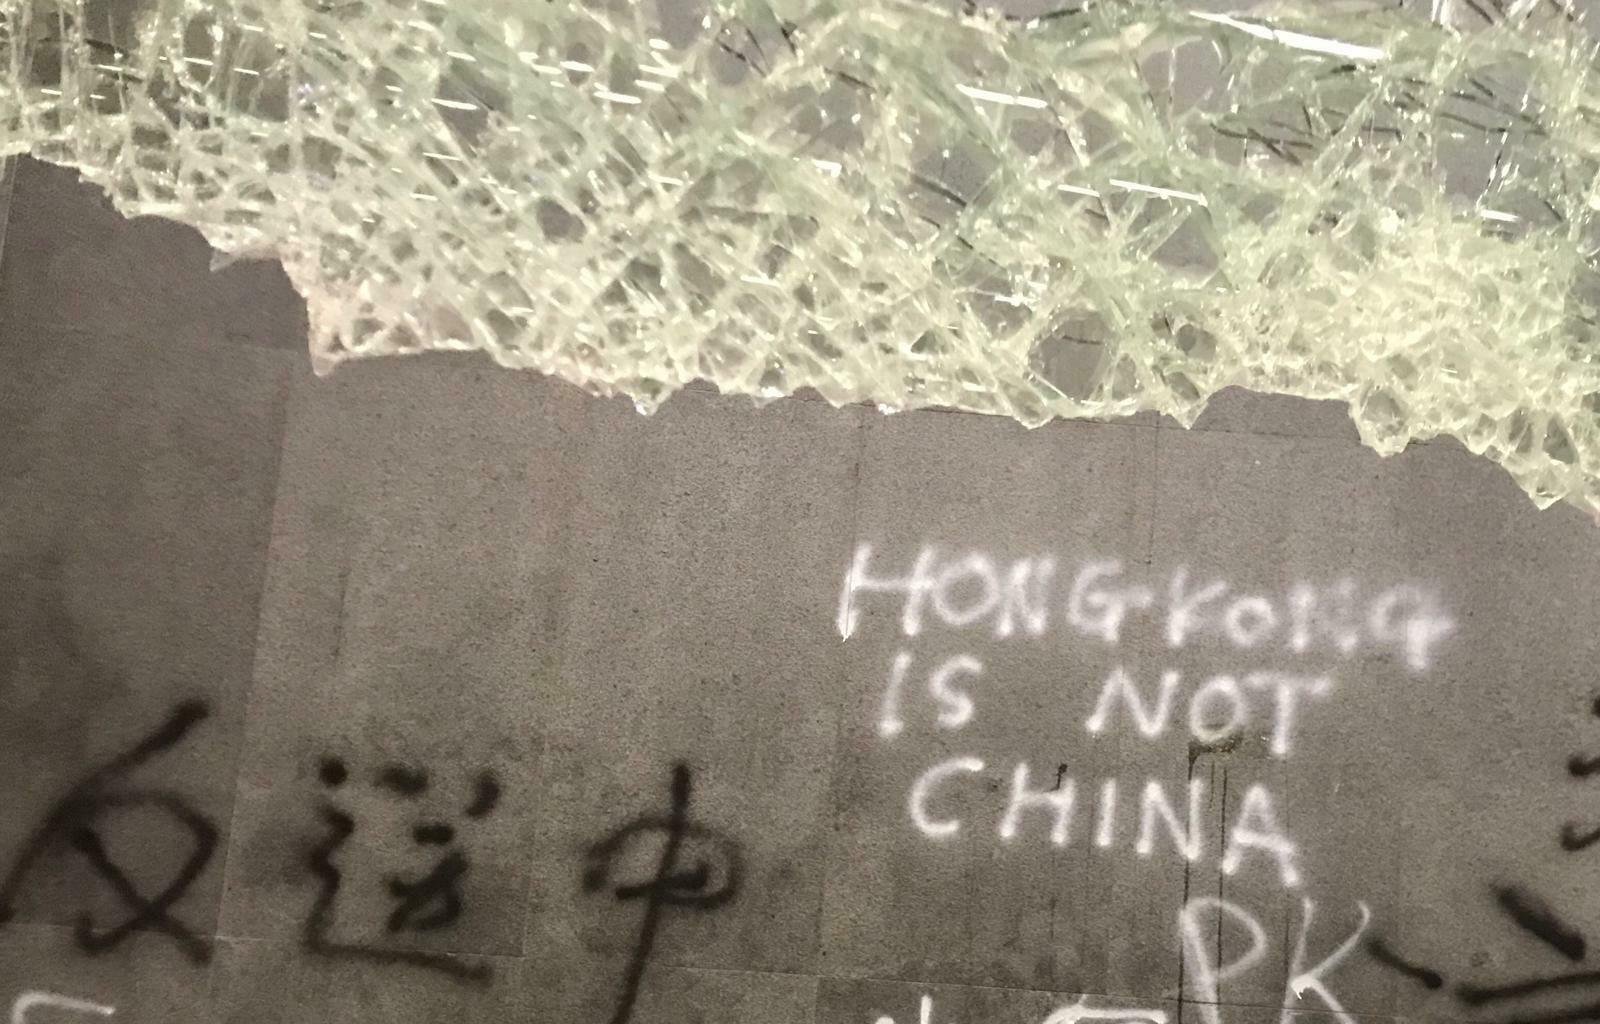 HONG KONG
IS NOT
CHINA
反送中
PK